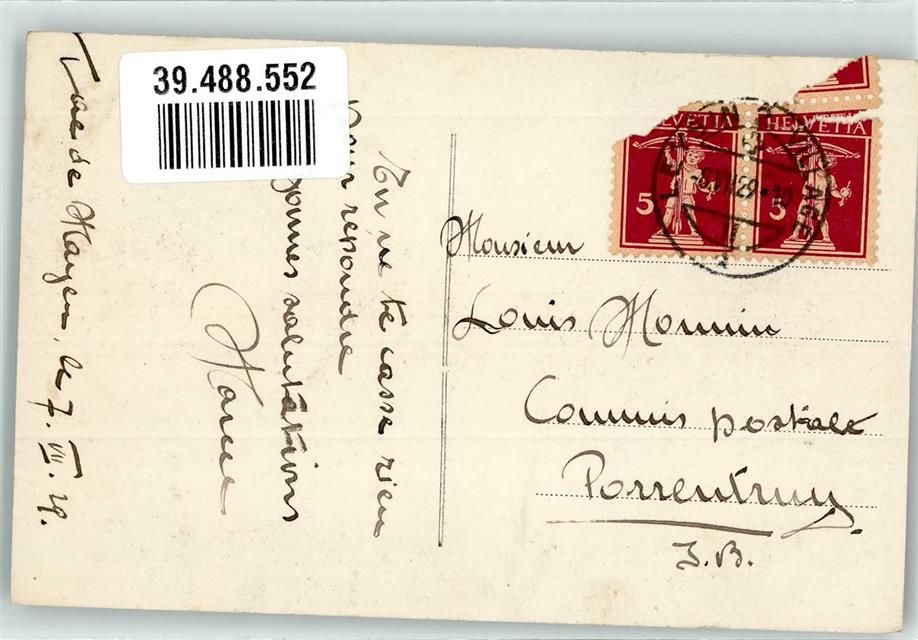 39.488.552
Vue de Mayen, le 7. VII. 29.
Tu ne te casse rien
pour repondre
Bonnes salutations
HELVETIA
HELVETIA
5
5
Monsieur
Louis Monnin
Commis postale
Porrentruy
J.B.